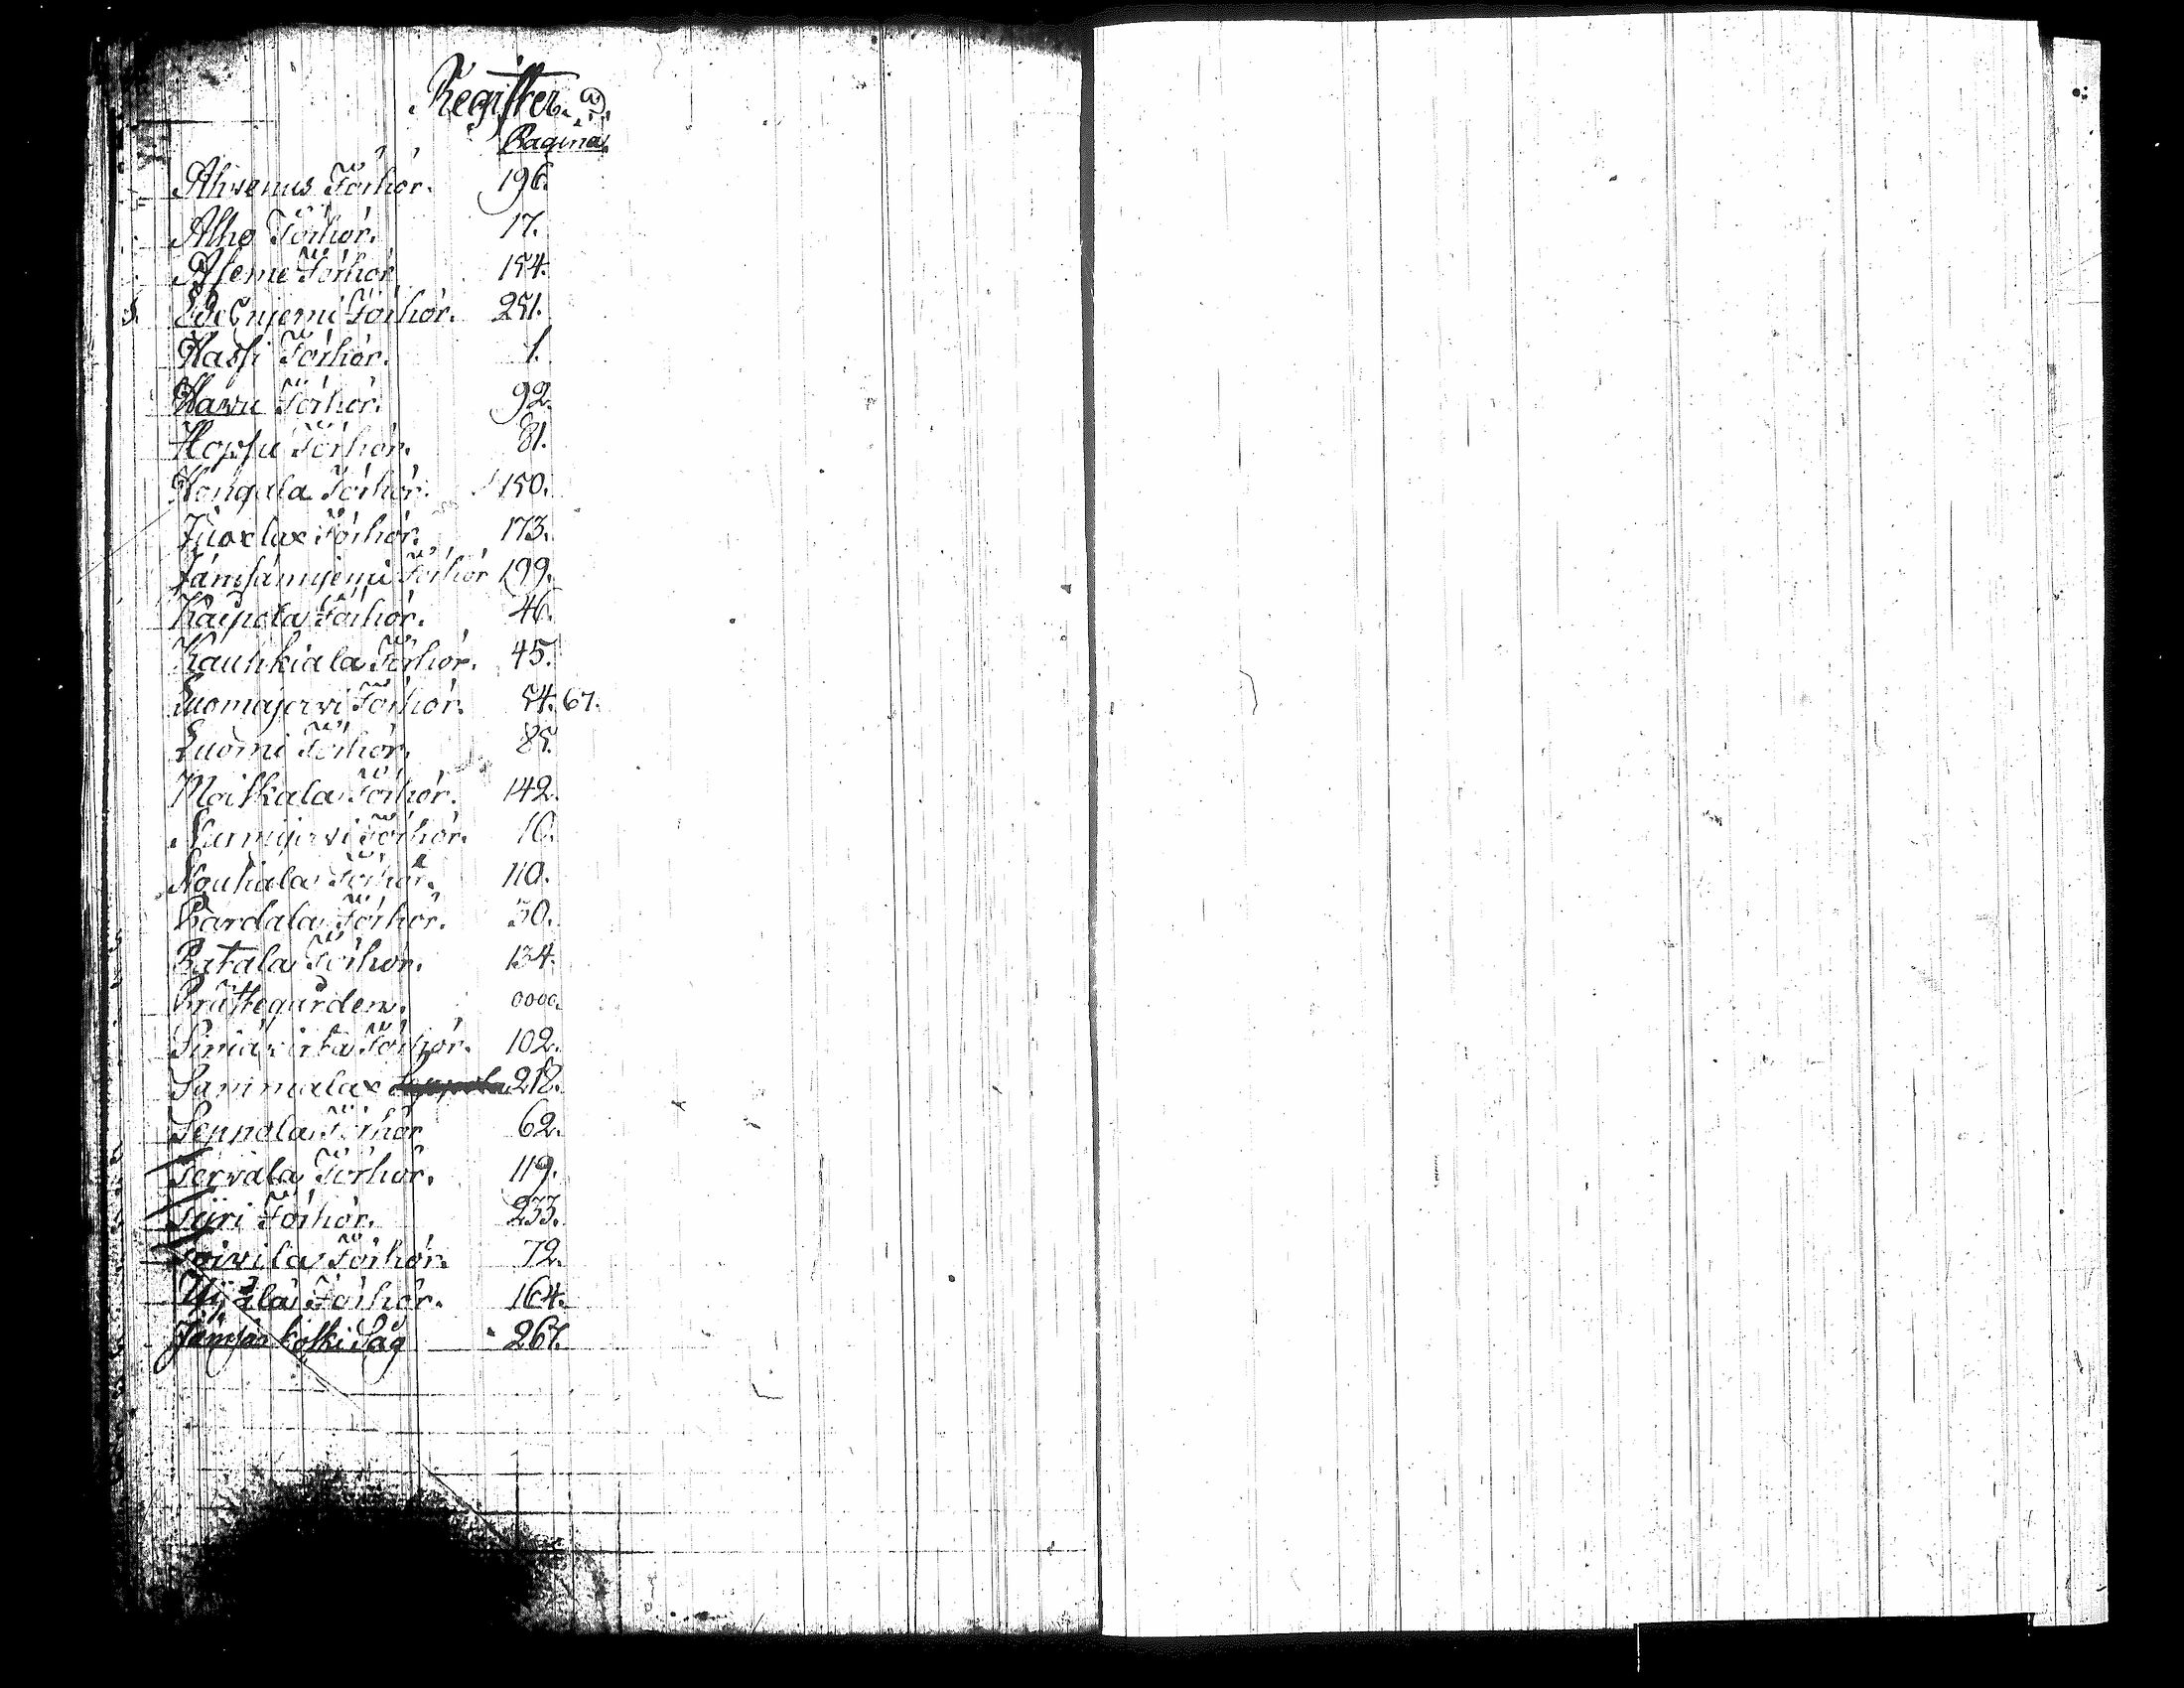 Register.
Pagina.
Ahvenus Förhör. 196.
Alho Förhör. 17.
Asemi Förhör 154.
Edesnjemi Förhör. 251.
Hassi Förhör. 1.
Hawu Förhör. 92.
Hopsu Förhör. 81.
Hongala Förhör. 150.
Juoxlax Förhör. 173.
Jämsännjemi Förhör 199.
Kaipola Förhör. 46.
Kauhkiala Förhör. 45.
Luomajervi Förhör. 54. 67.
Luomi Förhör. 85.
Moiskala Förhör. 142.
Nurmijervi Förhör. 10.
Nouhiala Förhör. 110.
Pardala Förhör. 30.
Patala Förhör. 134.
Prästegården. 0000.
Förhör. 102.
Sammalax 212.
Seppola Förhör 62.
Tervala Förhör. 119.
Tyri Förhör. 233.
Toivila Förhör. 72.
Förhör. 164.
Jämsän koski Såg 267.